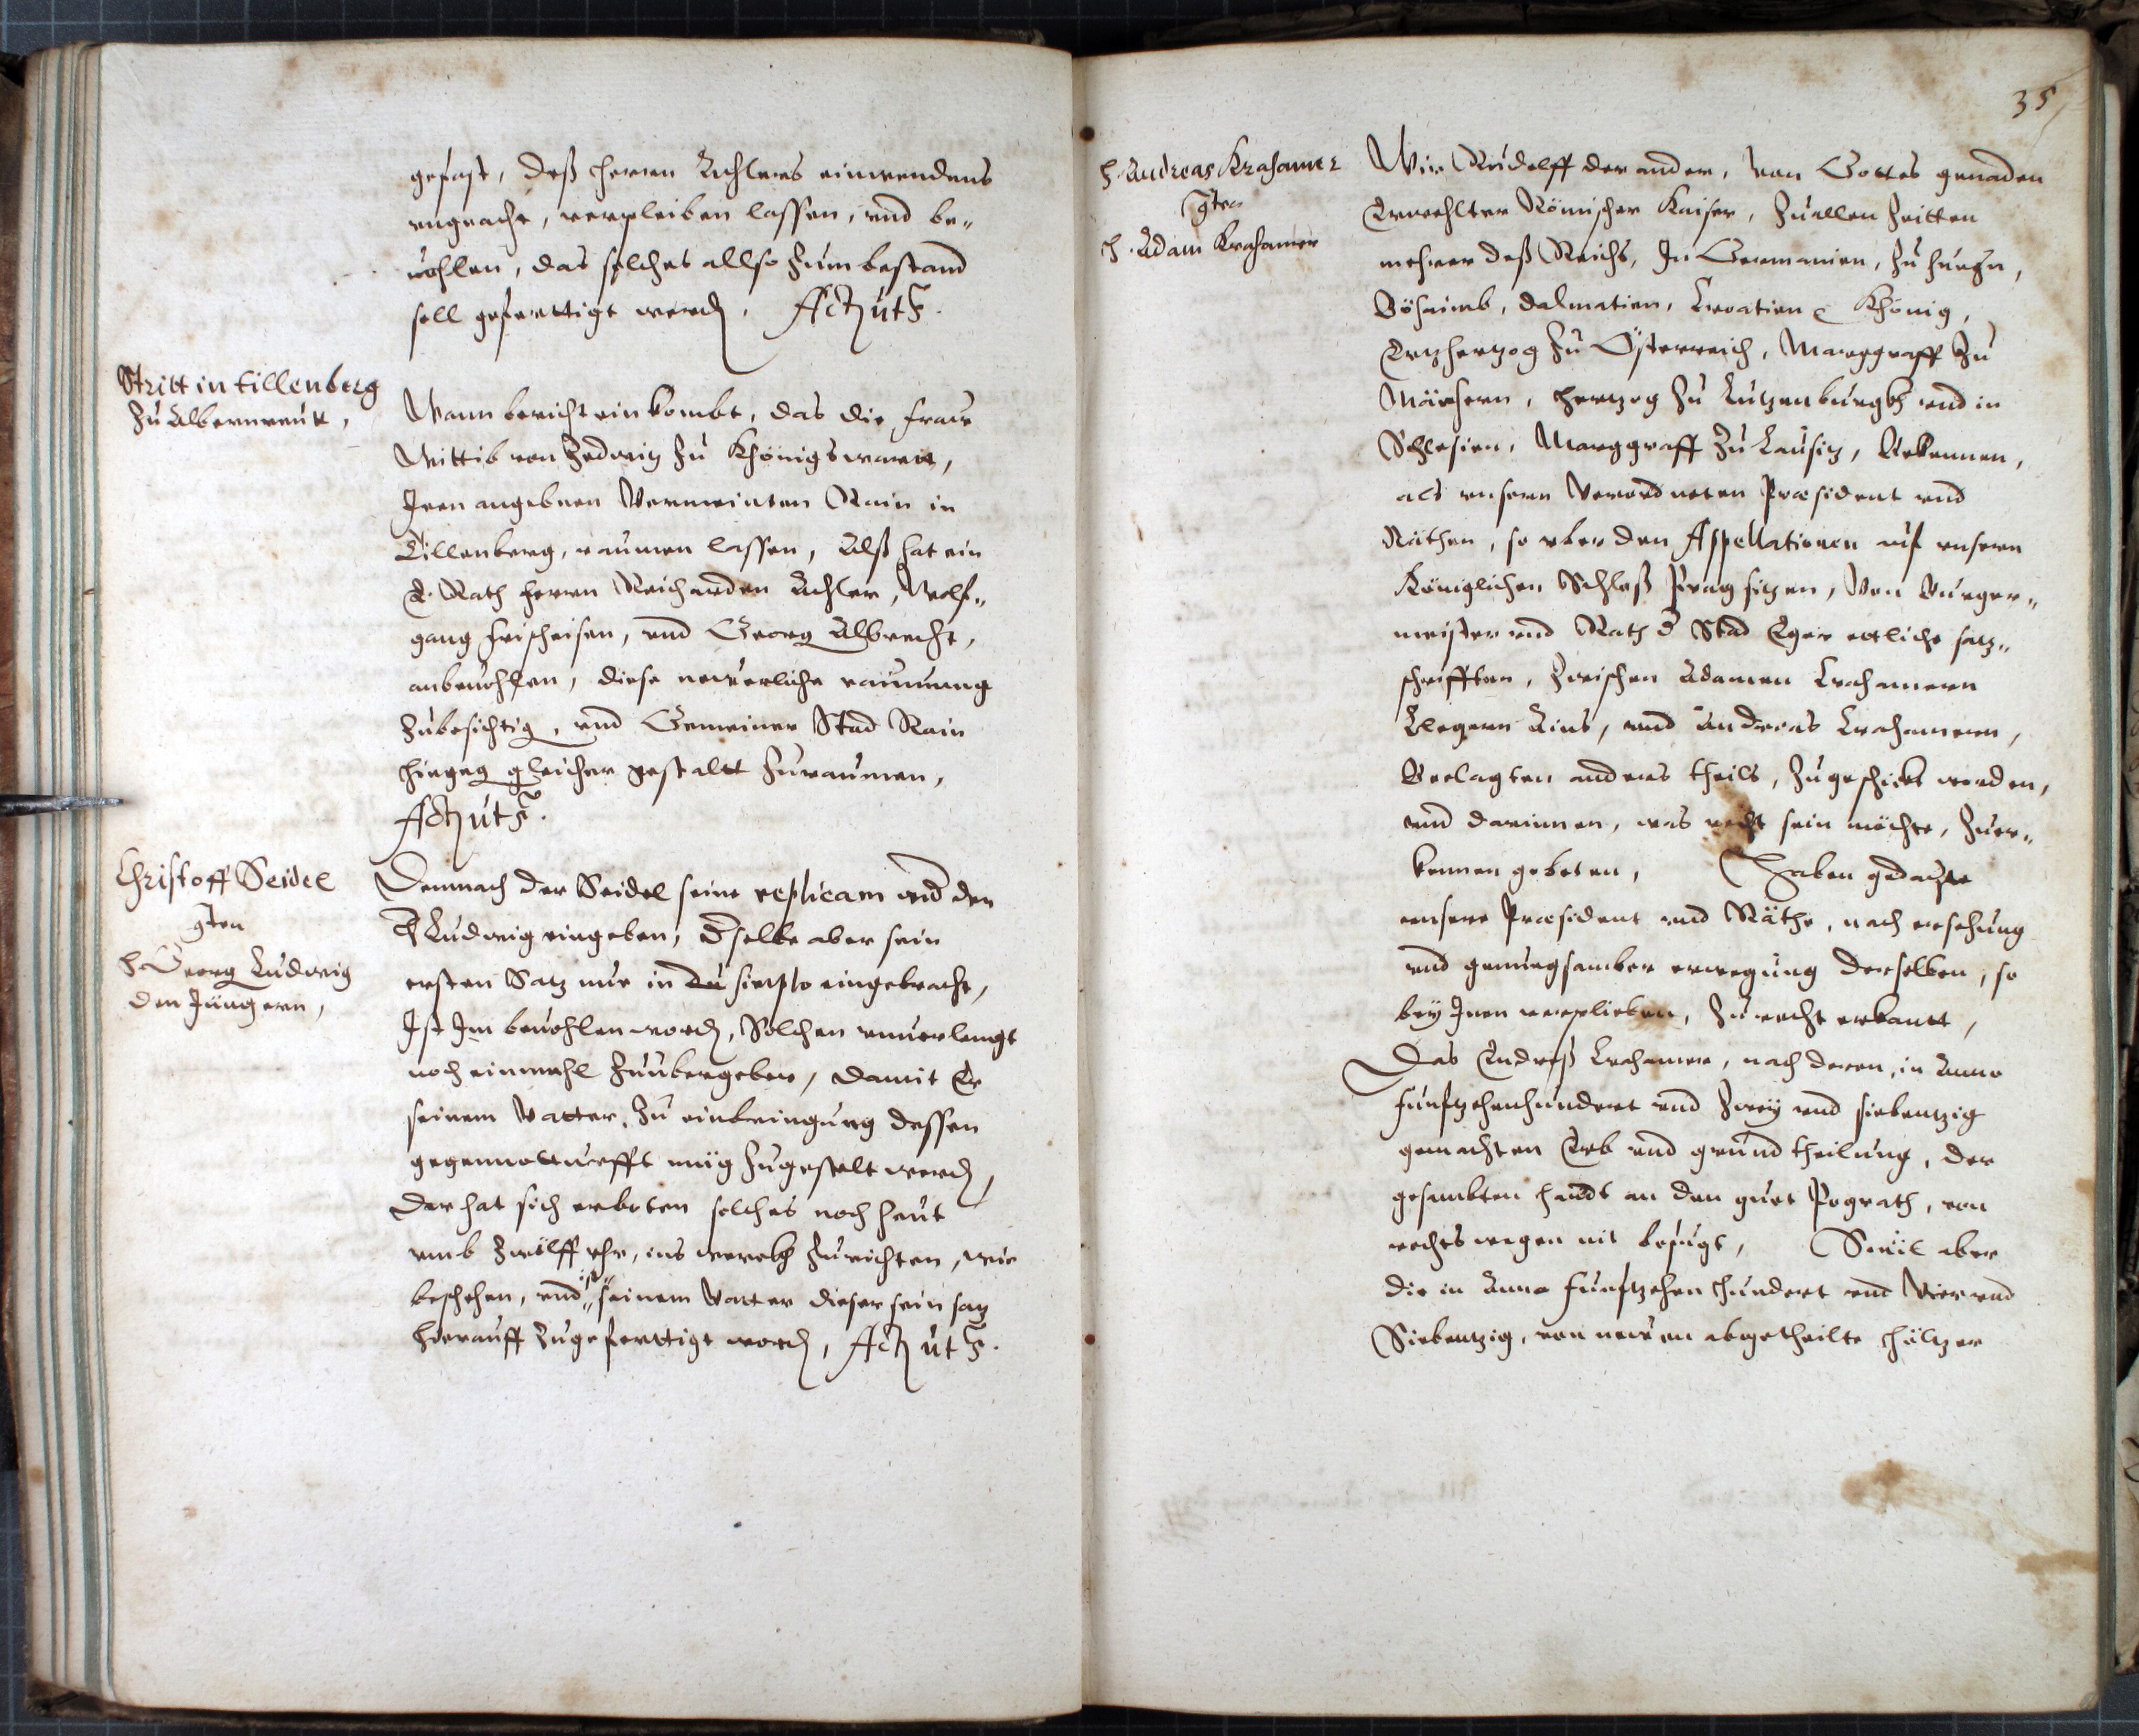 gefast, deß herrn Achlers einwendens
vngeacht, verpleiben lassen, vnd be„
uohlen, das solches allso zum bestand
soll gefertigt werden. Act ut s.
Stritt in Tillenberg
zu Albernreut,
Wann bericht ein kombt, das die fraw
Wittib von Zedwitz zu Khönigswartt,
Iren angebnen Vermeinten Rain in
Tillenberg, raumen lassen, Alß hat ein
E. Rath herrn Reicharden Achler, Wolf„
gang frischeisen, vnd Georg Albrecht,
anbeuohlen, diese newerliche raumung
zubesichtig, vnd Gemeiner Stad Rain
hiegeg gleicher gestaltt zuraumen,
Act ut s.
Christoff Seidel
gten
H Georg Ludwig
den Jüngern,
Demnach der Seidel seine replicam wid den
H Ludwig eingeben, dselbe aber sein
ersten Satz nur in du simplo eingebracht,
Ist Im beuohlen worden, Solchen vnuerlengt
noch einmahl zuubergeben, damit Er
seinem Vatter, zu einbringung dessen
gegennotturfft müg zugestelt werden,
Der hat sich erboten solches noch heut
vmb zwölff vhr, ins werckh zurichten, wie
beschehen, vnd ist seinem Vatter dieser sein satz
hierauff zugefertigt worden, Act ut s.
35
H. Andreas Krahamer
gten
H. Adam Krahamer
Wir Rudolff der ander, von Gottes genaden
Erwehlter Römischer Kaiser, zuallen zeitten
mehrer deß Reichs, In Germanien, zu hungern,
Böhaimb, Dalmatien, Croatien &c Khönig,
Ertzhertzog zu Österreich, Marggraff zu
Märhern, Hertzog zu Lutzenburgkh vnd in
Schlesien, Marggraff zu Lausitz, Bekennen,
als vnsern Verordneten Præsident vnd
Räthen, so vber den Appellationen auf vnserm
Königlichen Schloß Prag sitzen, Von Burger„
meister vnd Rath d Stad Eger ettliche satz„
schrifften, zwischen Adamen Crahamern
Clegern Eins, vnd Andreas Crahamern,
Beclagten anders theils, zugeschickt worden,
vnd darinnen, was recht sein möchte, zuer„
kennen gebeten, Haben gedachte
vnsere Præsident vnd Räthe, nach ersehung
vnd genungsamber erwegung derselben, so
bey Inen verplieben, zu recht erkantt,
Das Endreß Crahamer, nach deren, in Anno
funftzehenhundert vnd zwey vnd siebentzig
gemachten Erb vnd grund theilung, der
gesambten handt an den guet Pograth, von
rechts wegen nit befugt, Souil aber
die in Anno funftzehen hundert vnd Vier vnd
Siebentzig, von newen abgetheilte höltzer